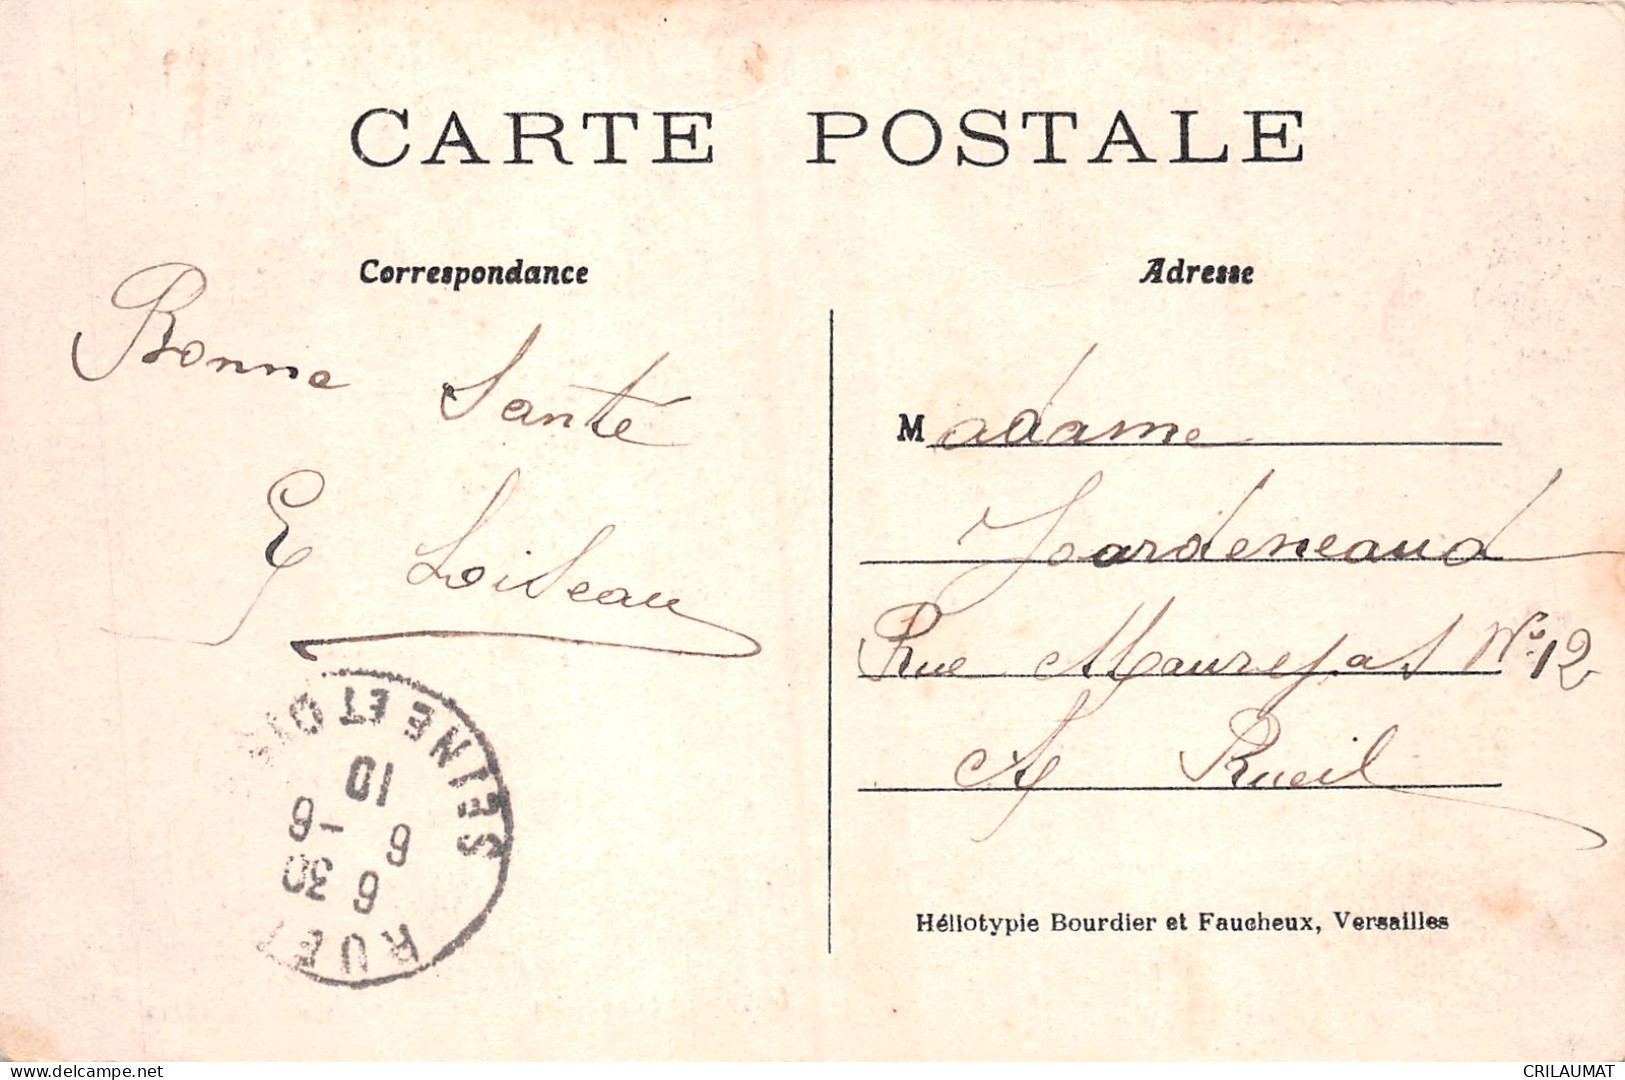 CARTE POSTALE
Correspondance
Bonne Santé
E Loiseau
Adresse
Madame
Jourdeneaud
Rue Maurepas No 12
A Rueil
SEINE ET OIS
10
6 - 6
6 30
RUEI
Héliotypie Bourdier et Faucheux, Versailles
www.delcampe.net
CRILAUMAT